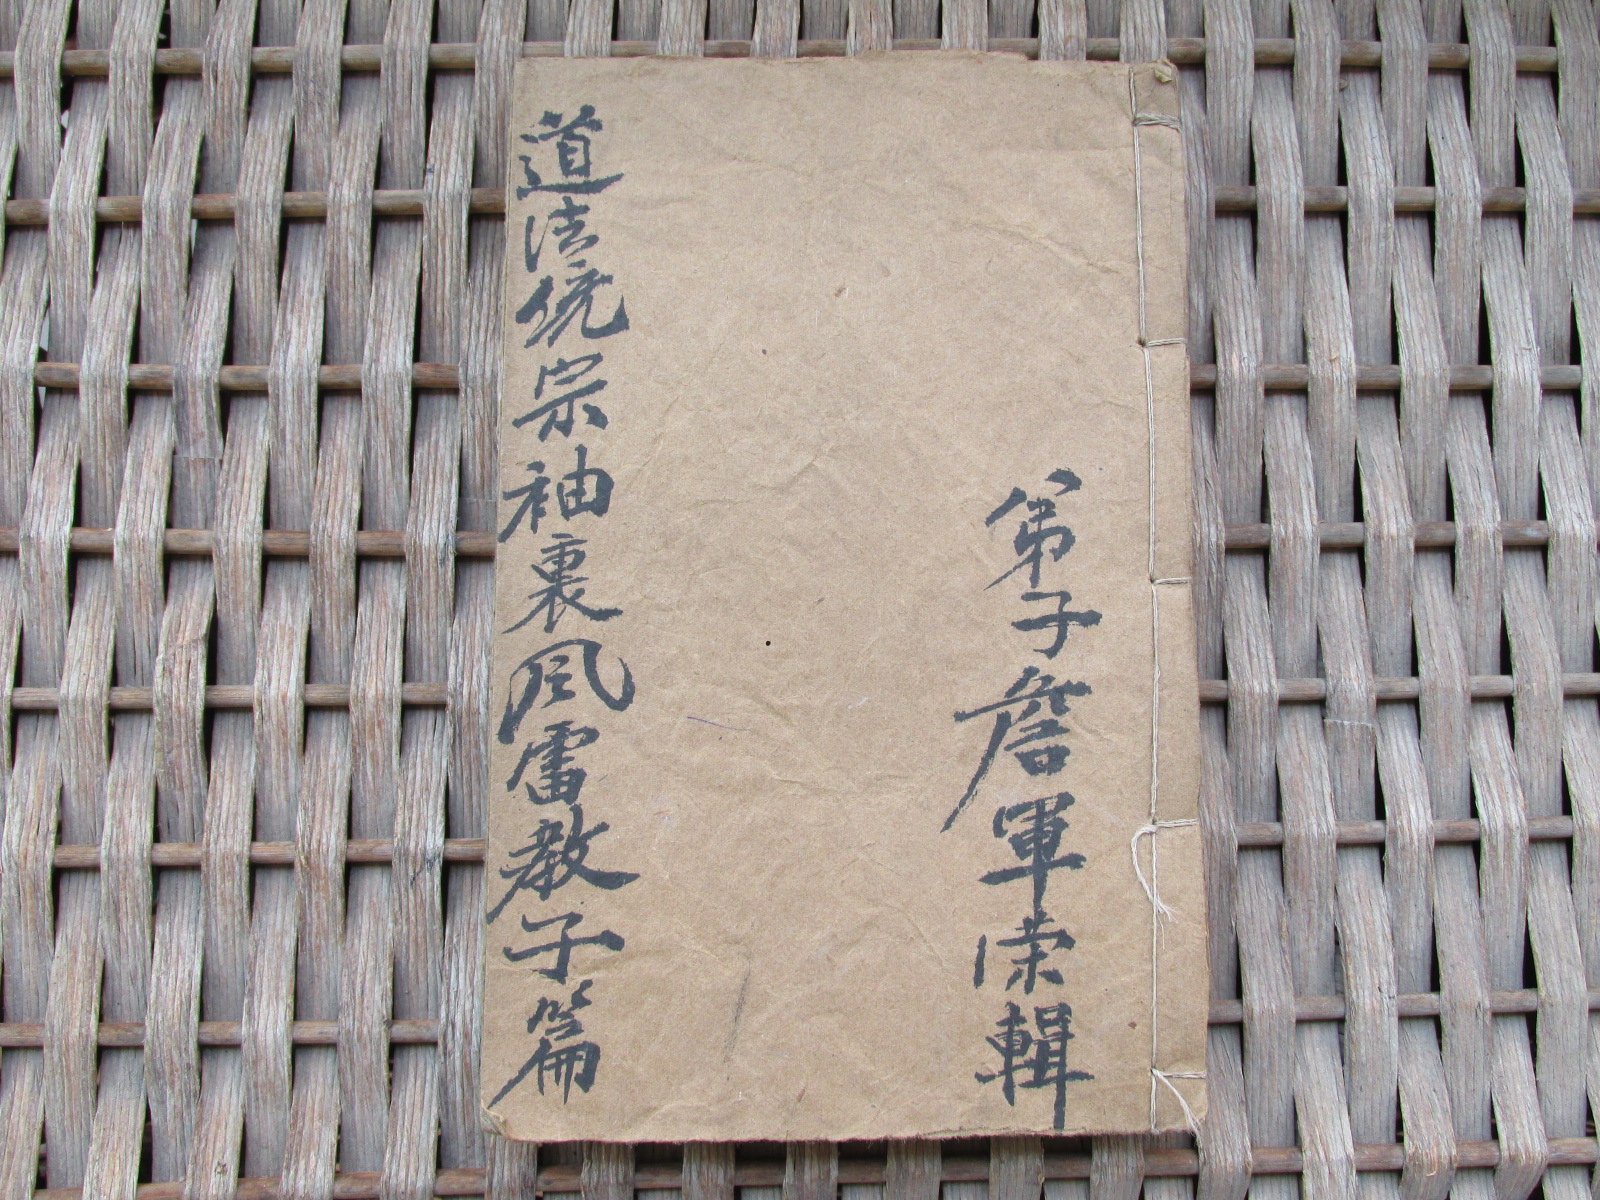 弟子詹軍栄輯
道法統宗袖裏風雷教子篇